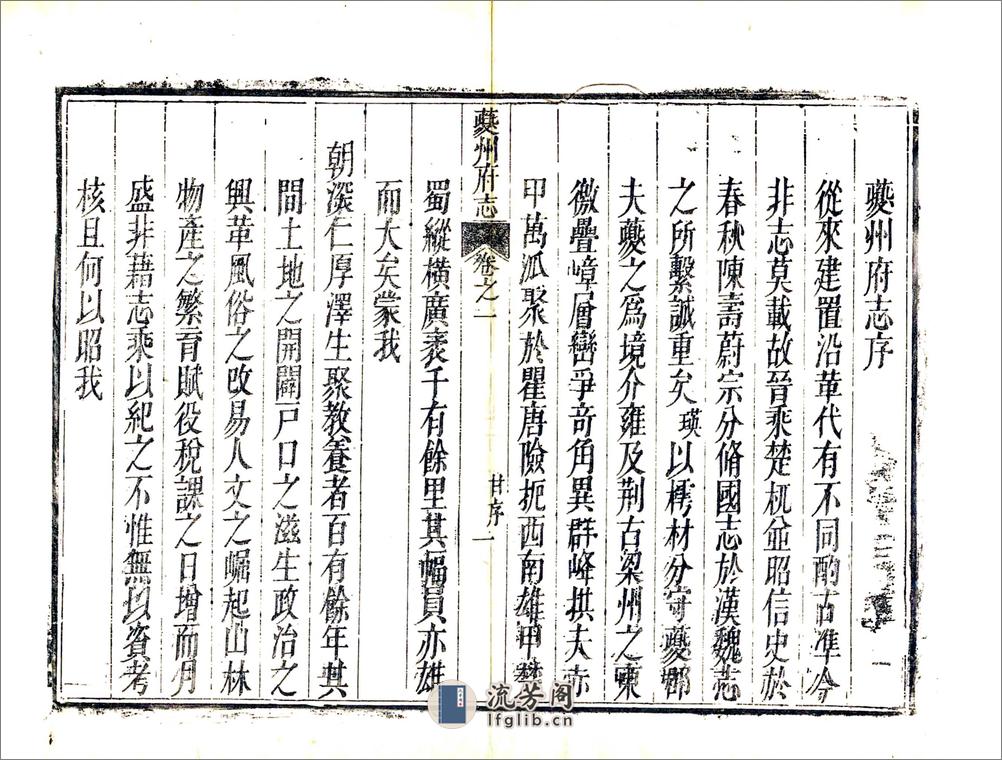 夔州府志序
從來建置沿革代有不同酌古凖今
非志莫載故晉乘楚杌並昭信史於
春秋陳壽蔚宗分脩國志於漢魏志
之所繫誠重矣瑛以樗材分守夔郡
夫夔之爲境介雍及荆古梁州之東
徼疊嶂層巒爭竒角異群峰拱夫赤
甲萬派聚於瞿唐險扼西南雄甲
夔州府志
卷之一
甘序
一
蜀縱橫廣袤千有餘里其幅員亦雄
而大矣蒙我
朝深仁厚澤生聚教養者百有餘年其
間土地之開闢戸口之滋生政治之
興革風俗之改易人文之崛起山林
物產之繁育賦役稅課之日增而月
盛非藉志乘以紀之不惟無以資考
核且何以昭我
流芳阁
lfglib.cn